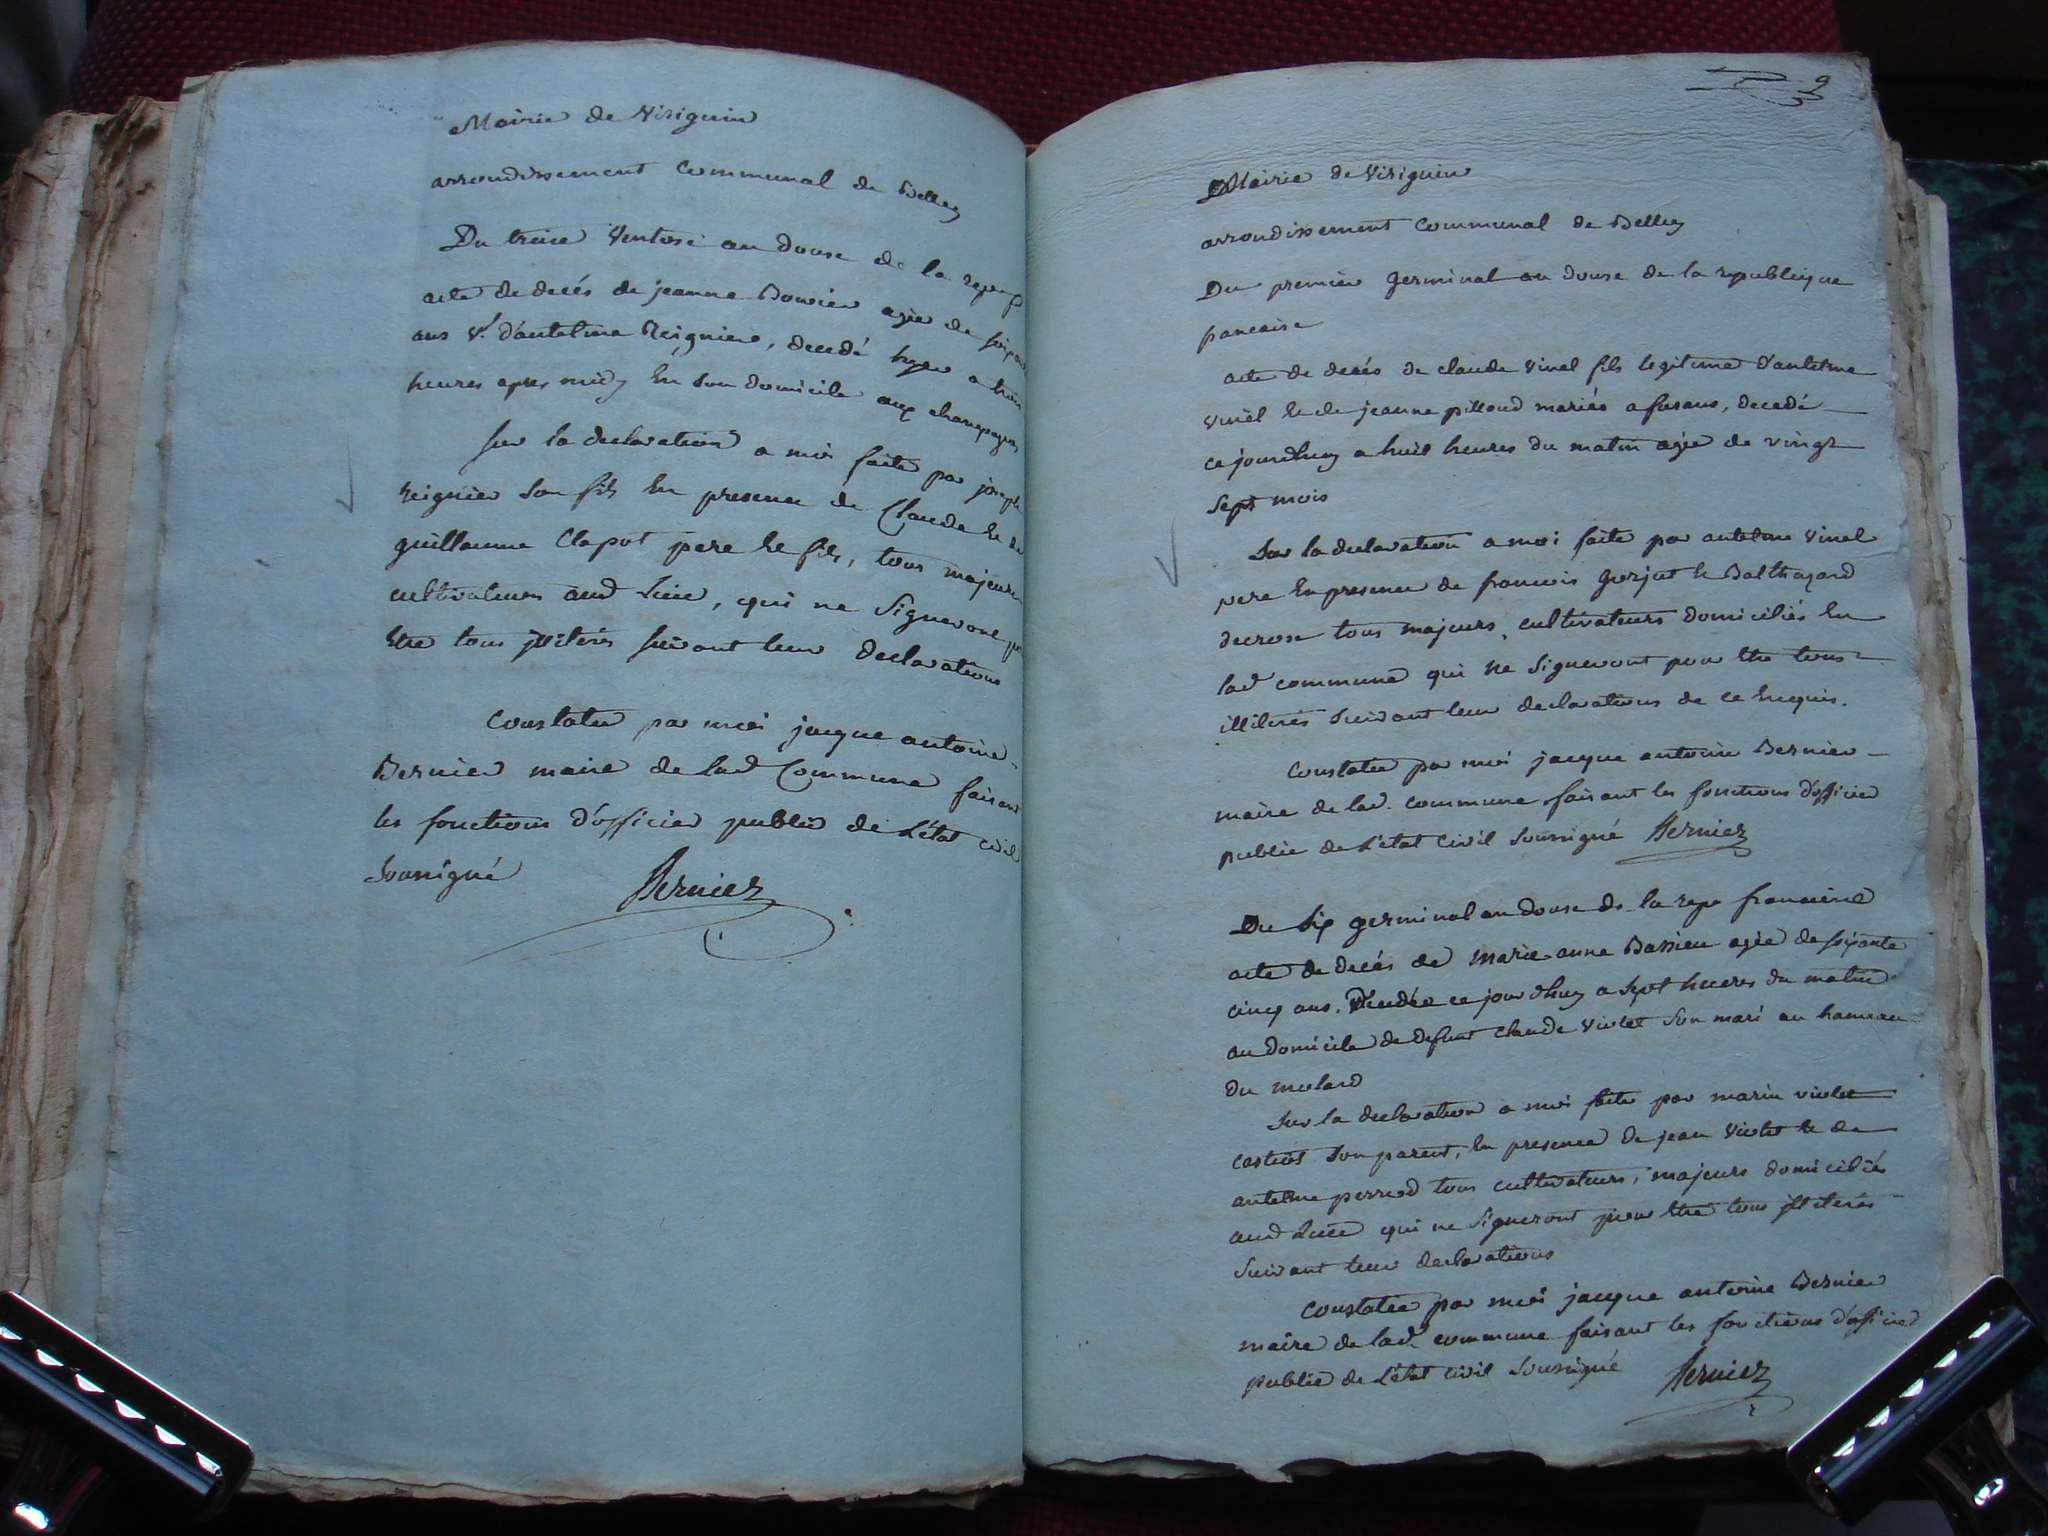 Mairie de Virignin
arrondissement Communal de Belley
Du treise Ventose an douse de la repuq
acte de decés de jeanne Bouvier agée de soixante
ans v.e d'antelme Reignier, decedé hyer a trois
heures apres midy En son domicile aux champagnes
sur la declaration a moi faite par joseph
Reignier son fils En presence de Claude Et de
guillaume Clapot pere Et fils, tous majeurs
cultivateurs aud Lieu, qui ne Signeront pr
Etre tous jlliterés suivant leur declarations
Constatée par moi jacque antoine
Bernier maire de lad Commune faisant
les fonctions d'officier public de L'état civil
Soussigné Bernier
9
Mairie de Virignin
arrondissement communal de Belley
Du premier germinal an douse de la republique
francaise
acte de decés de claude vinel fils legitime d'antelme
vinel Et de jeanne pilloud mariés a fusans, decedé
ce jourdhuy a huit heures du matin agée de vingt
Sept mois
Sur la declaration a moi faite par antelme vinel
pere En presence de francois Gorjut Et Balthazard
decrose tous majeurs, cultivateurs domiciliés En
lad commune qui ne Signeront pour Etre tous
illiterés suivant leur declarations de ce Enquis.
Constatée par moi jacque antoine Bernier
maire de lad. commune faisant les fonctions d'officier
public de L'état Civil Soussigné Bernier
Du Six germinal an douse de la repu francaise
acte de decés de marie anne Bassieu agée de soixante
cinq ans. Decedée ce jourdhuy a sept heures du matin
au domicile de defunt claude violet Son mari au hameau
du molard
Sur la declaration a moi faite par marin violet
Son parent, En presence de jean violet Et de
antelme perrod tous cultivateurs, majeurs domiciliés
aud Lieu qui ne Signeront pour Etre tous jlliterés
Suivant leur declarations
Constatée par moi jacque antoine Bernier
maire de lad. commune faisant les fonctions d'officier
public de L'état civil Soussigné Bernier